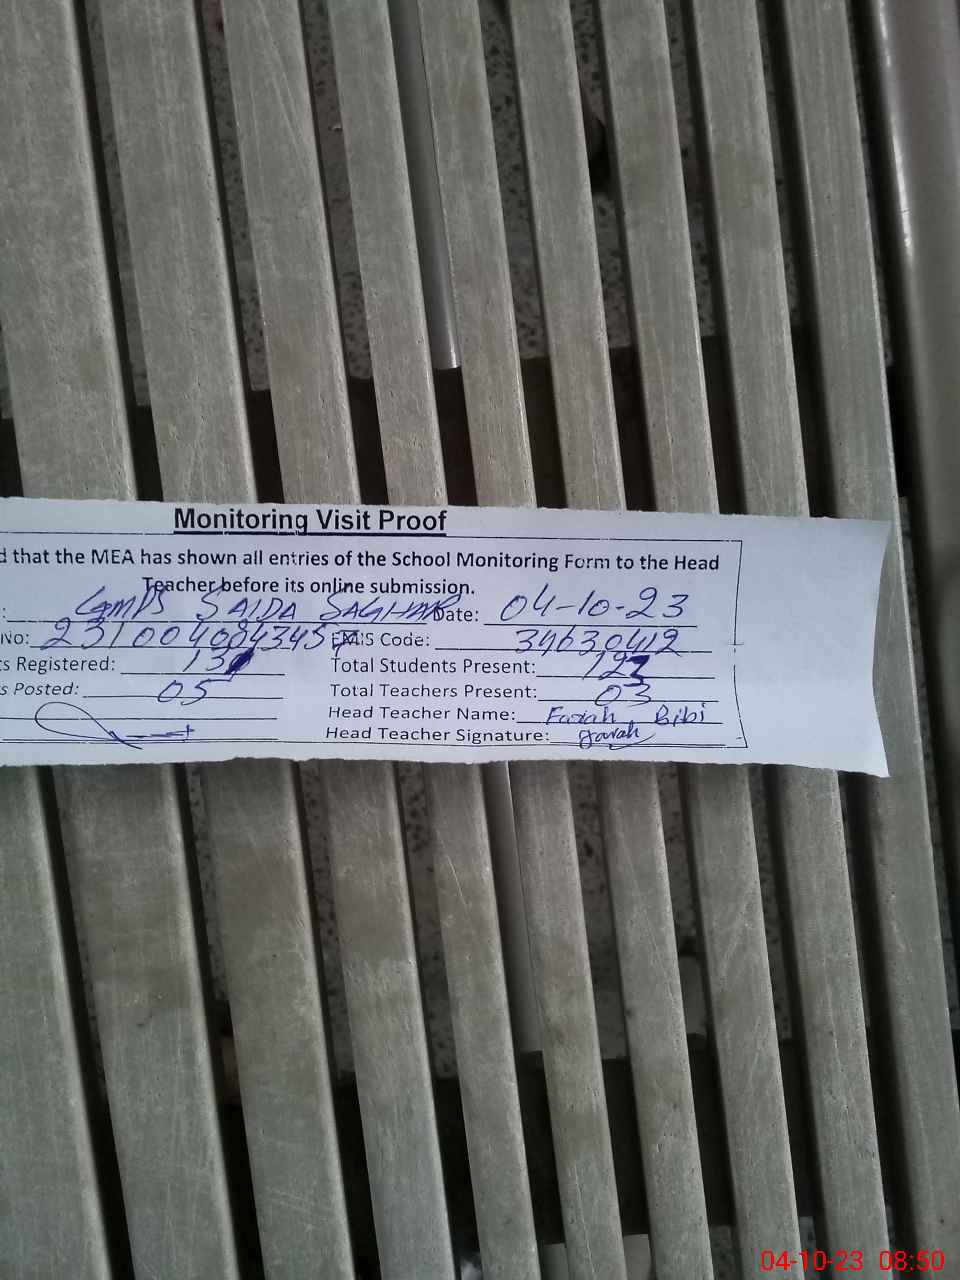 Monitoring Visit Proof
d that the MEA has shown all entries of the School Monitoring Form to the Head
Teacher before its online submission.
: GMPS SAIDA SAGHAR Date: 04-10-23
No: EMIS Code: 34630412
s Registered: Total Students Present:
s Posted: 05 Total Teachers Present: 03
Head Teacher Name: Farah Bibi
Head Teacher Signature: Farah
04-10-23 08:50